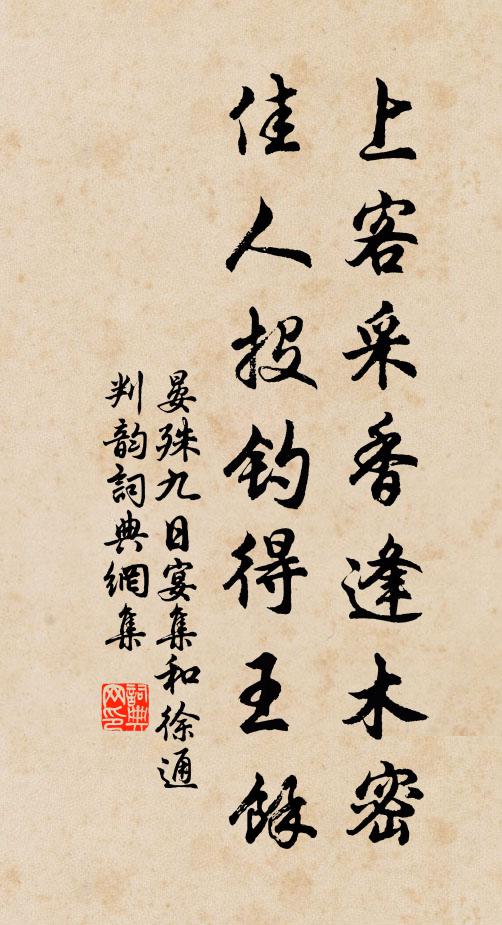 上客采香逢木密
佳人投钓得王馀
晏殊九日宴集和徐通
判韵詞典網集
詞典
网印